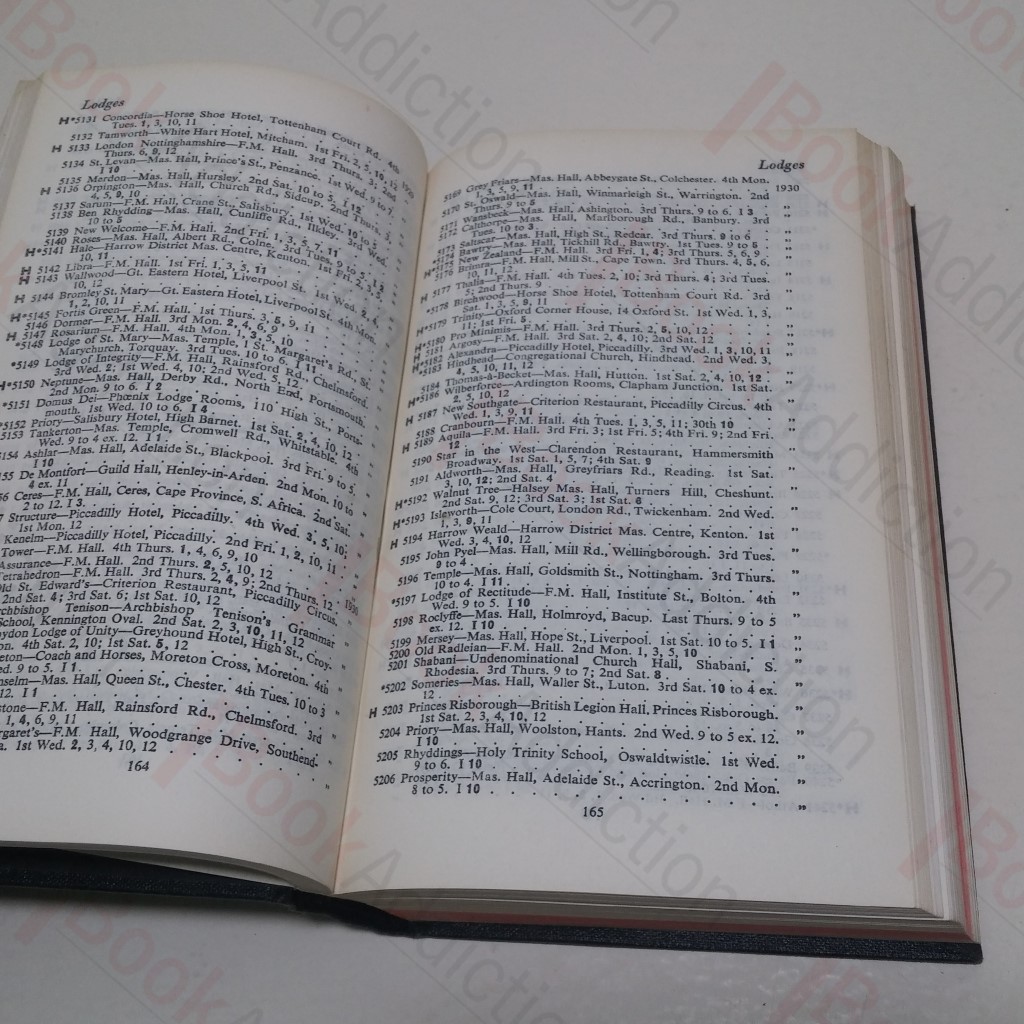 Lodges
H*5131 Concordia—Horse Shoe Hotel, Tottenham Court Rd. 4th
Tues. 1, 3, 10, 11
5132 Tamworth—White Hart Hotel, Mitcham. 1st Fri. 2, 5, 10, 12
H 5133 London Nottinghamshire—F.M. Hall. 3rd Thurs. 3; 2nd
Thurs. 6, 9, 12
5134 St. Levan—Mas. Hall, Prince's St., Penzance. 1st Wed. 9 to 7.
I 10
5135 Merdon—Mas. Hall, Hursley. 2nd Sat. 10 to 5. I 12
H 5136 Orpington—Mas. Hall, Church Rd., Sidcup. 2nd Thurs.
4, 5, 9, 10
5137 Sarum—F.M. Hall, Crane St., Salisbury. 1st Wed. 10 to 5
5138 Ben Rhydding—Mas. Hall, Cunliffe Rd., Ilkley. 3rd Wed.
10 to 5
5139 New Welcome—F.M. Hall. 2nd Fri. 1, 3, 5, 7, 11
5140 Roses—Mas. Hall, Albert Rd., Colne. 3rd Tues. 9 to 5. I 12
H*5141 Hale—Harrow District Mas. Centre, Kenton. 1st Fri. 2, 5,
10, 11
H 5142 Libra—F.M. Hall. 1st Fri. 1, 3, 5, 11
H 5143 Wallwood—Gt. Eastern Hotel, Liverpool St. 1st Wed. 2, 4,
10, 12
H 5144 Bromley St. Mary—Gt. Eastern Hotel, Liverpool St. 4th Mon.
1, 2, 10, 11
H*5145 Fortis Green—F.M. Hall. 1st Thurs. 3, 5, 9, 11
5146 Dormer—F.M. Hall. 3rd Mon. 2, 4, 6, 9
H 5147 Rosarium—F.M. Hall. 4th Mon. 1, 3, 5, 10
*5148 Lodge of St. Mary—Mas. Temple, 1 St. Margaret's Rd., St.
Marychurch, Torquay. 3rd Tues. 10 to 6. I 11
*5149 Lodge of Integrity—F.M. Hall, Rainsford Rd., Chelmsford.
3rd Wed. 2; 1st Wed. 4, 10; 2nd Wed. 5, 12
H*5150 Neptune—Mas. Hall, Derby Rd., North End, Portsmouth.
2nd Mon. 9 to 6. I 2
*5151 Domus Dei—Phœnix Lodge Rooms, 110 High St., Ports-
mouth. 1st Wed. 10 to 6. I 4
*5152 Priory—Salisbury Hotel, High Barnet. 1st Sat. 2, 4, 10, 12
5153 Tankerton—Mas. Temple, Cromwell Rd., Whitstable. 4th
Wed. 9 to 4 ex. 12. I 1
5154 Ashlar—Mas. Hall, Adelaide St., Blackpool. 3rd Fri. 9 to 5.
I 10
55 De Montfort—Guild Hall, Henley-in-Arden. 2nd Mon. 10 to
4 ex. 11
56 Ceres—F.M. Hall, Ceres, Cape Province, S. Africa. 2nd Sat.
2 to 12. I 3
7 Structure—Piccadilly Hotel, Piccadilly. 4th Wed. 3, 5, 10;
1st Mon. 12
Kenelm—Piccadilly Hotel, Piccadilly. 2nd Fri. 1, 2, 10, 11
Tower—F.M. Hall. 4th Thurs. 1, 4, 6, 9, 10
Assurance—F.M. Hall. 2nd Thurs. 2, 5, 10, 12
Tetrahedron—F.M. Hall. 3rd Thurs. 2, 4, 9; 2nd Thurs. 12 1930
ld St. Edward's—Criterion Restaurant, Piccadilly Circus.
2nd Sat. 4; 3rd Sat. 6; 1st Sat. 10, 12
rchbishop Tenison—Archbishop Tenison's Grammar
School, Kennington Oval. 2nd Sat. 2, 3, 10, 11, 12
oydon Lodge of Unity—Greyhound Hotel, High St., Croy-
on. 4th Sat. 2, 10; 1st Sat. 5, 12
reton—Coach and Horses, Moreton Cross, Moreton. 4th
ed. 9 to 5. I 1
nselm—Mas. Hall, Queen St., Chester. 4th Tues. 10 to 3
12. I 1
stone—F.M. Hall, Rainsford Rd., Chelmsford. 3rd
1, 4, 6, 9, 11
rgaret's—F.M. Hall, Woodgrange Drive, Southend-
a. 1st Wed. 2, 3, 4, 10, 12
164
Lodges
5169 Grey Friars—Mas. Hall, Abbeygate St., Colchester. 4th Mon.
1, 3, 5, 9, 11 1930
5170 St. Oswald—Mas. Hall, Winmarleigh St., Warrington. 2nd
Thurs. 9 to 5
5171 Wansbeck—Mas. Hall, Ashington. 3rd Thurs. 9 to 6. I 3
5172 Calthorpe—Mas. Hall, Marlborough Rd., Banbury. 3rd
Tues. 10 to 3
5173 Saltscar—Mas. Hall, High St., Redcar. 3rd Thurs. 9 to 6
5174 Bawtry—Mas. Hall, Tickhill Rd., Bawtry. 1st Tues. 9 to 5
*5175 New Zealand—F.M. Hall. 3rd Fri. 1, 4; 3rd Thurs. 5, 6, 9
5176 Brimra—F.M. Hall, Mill St., Cape Town. 3rd Thurs. 4, 5, 6,
10, 11, 12
H 5177 Thalia—F.M. Hall. 4th Tues. 2, 10; 3rd Thurs. 4; 3rd Tues.
5; 2nd Thurs. 9
*5178 Birchwood—Horse Shoe Hotel, Tottenham Court Rd. 3rd
Sat. 1, 3, 5, 9, 11
H*5179 Trinity—Oxford Corner House, 14 Oxford St. 1st Wed. 1, 3,
11; 1st Fri. 5
H*5180 Pro Minimis—F.M. Hall. 3rd Thurs. 2, 5, 10, 12
H 5181 Argosy—F.M. Hall. 3rd Sat. 2, 4, 10; 2nd Sat. 12
H*5182 Alexandra—Piccadilly Hotel, Piccadilly. 3rd Wed. 1, 3, 10, 11
*5183 Hindhead—Congregational Church, Hindhead. 2nd Wed. 3,
4, 5, 10, 11, 12
5184 Thomas-à-Becket—Mas. Hall, Hutton. 1st Sat. 2, 4, 10, 12
H*5186 Wilberforce—Ardington Rooms, Clapham Junction. 1st Sat.
2, 5, 10, 12
H 5187 New Southgate—Criterion Restaurant, Piccadilly Circus. 4th
Wed. 1, 3, 9, 11
5188 Cranbourn—F.M. Hall. 4th Tues. 1, 3, 5, 11; 30th 10
H 5189 Aquila—F.M. Hall. 3rd Fri. 3; 1st Fri. 5; 4th Fri. 9; 2nd Fri.
12
5190 Star in the West—Clarendon Restaurant, Hammersmith
Broadway. 1st Sat. 1, 5, 7; 4th Sat. 9
5191 Aldworth—Mas. Hall, Greyfriars Rd., Reading. 1st Sat.
3, 10, 12; 2nd Sat. 4
H*5192 Walnut Tree—Halsey Mas. Hall, Turners Hill, Cheshunt.
2nd Sat. 9, 12; 3rd Sat. 3; 1st Sat. 6
H*5193 Isleworth—Cole Court, London Rd., Twickenham. 2nd Wed.
1, 3, 9, 11
H 5194 Harrow Weald—Harrow District Mas. Centre, Kenton. 1st
Wed. 3, 4, 10, 12
5195 John Pyel—Mas. Hall, Mill Rd., Wellingborough. 3rd Tues.
9 to 4
5196 Temple—Mas. Hall, Goldsmith St., Nottingham. 3rd Thurs.
10 to 4. I 11
*5197 Lodge of Rectitude—F.M. Hall, Institute St., Bolton. 4th
Wed. 9 to 5. I 10
5198 Roclyffe—Mas. Hall, Holmroyd, Bacup. Last Thurs. 9 to 5
ex. 12. I 10
5199 Mersey—Mas. Hall, Hope St., Liverpool. 1st Sat. 10 to 5. I 1
5200 Old Radleian—F.M. Hall. 2nd Mon. 1, 3, 5, 10
5201 Shabani—Undenominational Church Hall, Shabani, S.
Rhodesia. 3rd Thurs. 9 to 7; 2nd Sat. 8
*5202 Someries—Mas. Hall, Waller St., Luton. 3rd Sat. 10 to 4 ex.
12
H 5203 Princes Risborough—British Legion Hall, Princes Risborough.
1st Sat. 2, 3, 4, 10, 12
5204 Priory—Mas. Hall, Woolston, Hants. 2nd Wed. 9 to 5 ex. 12.
I 10
5205 Rhyddings—Holy Trinity School, Oswaldtwistle. 1st Wed.
9 to 6. I 10
5206 Prosperity—Mas. Hall, Adelaide St., Accrington. 2nd Mon.
8 to 5. I 10
165
Book Addiction